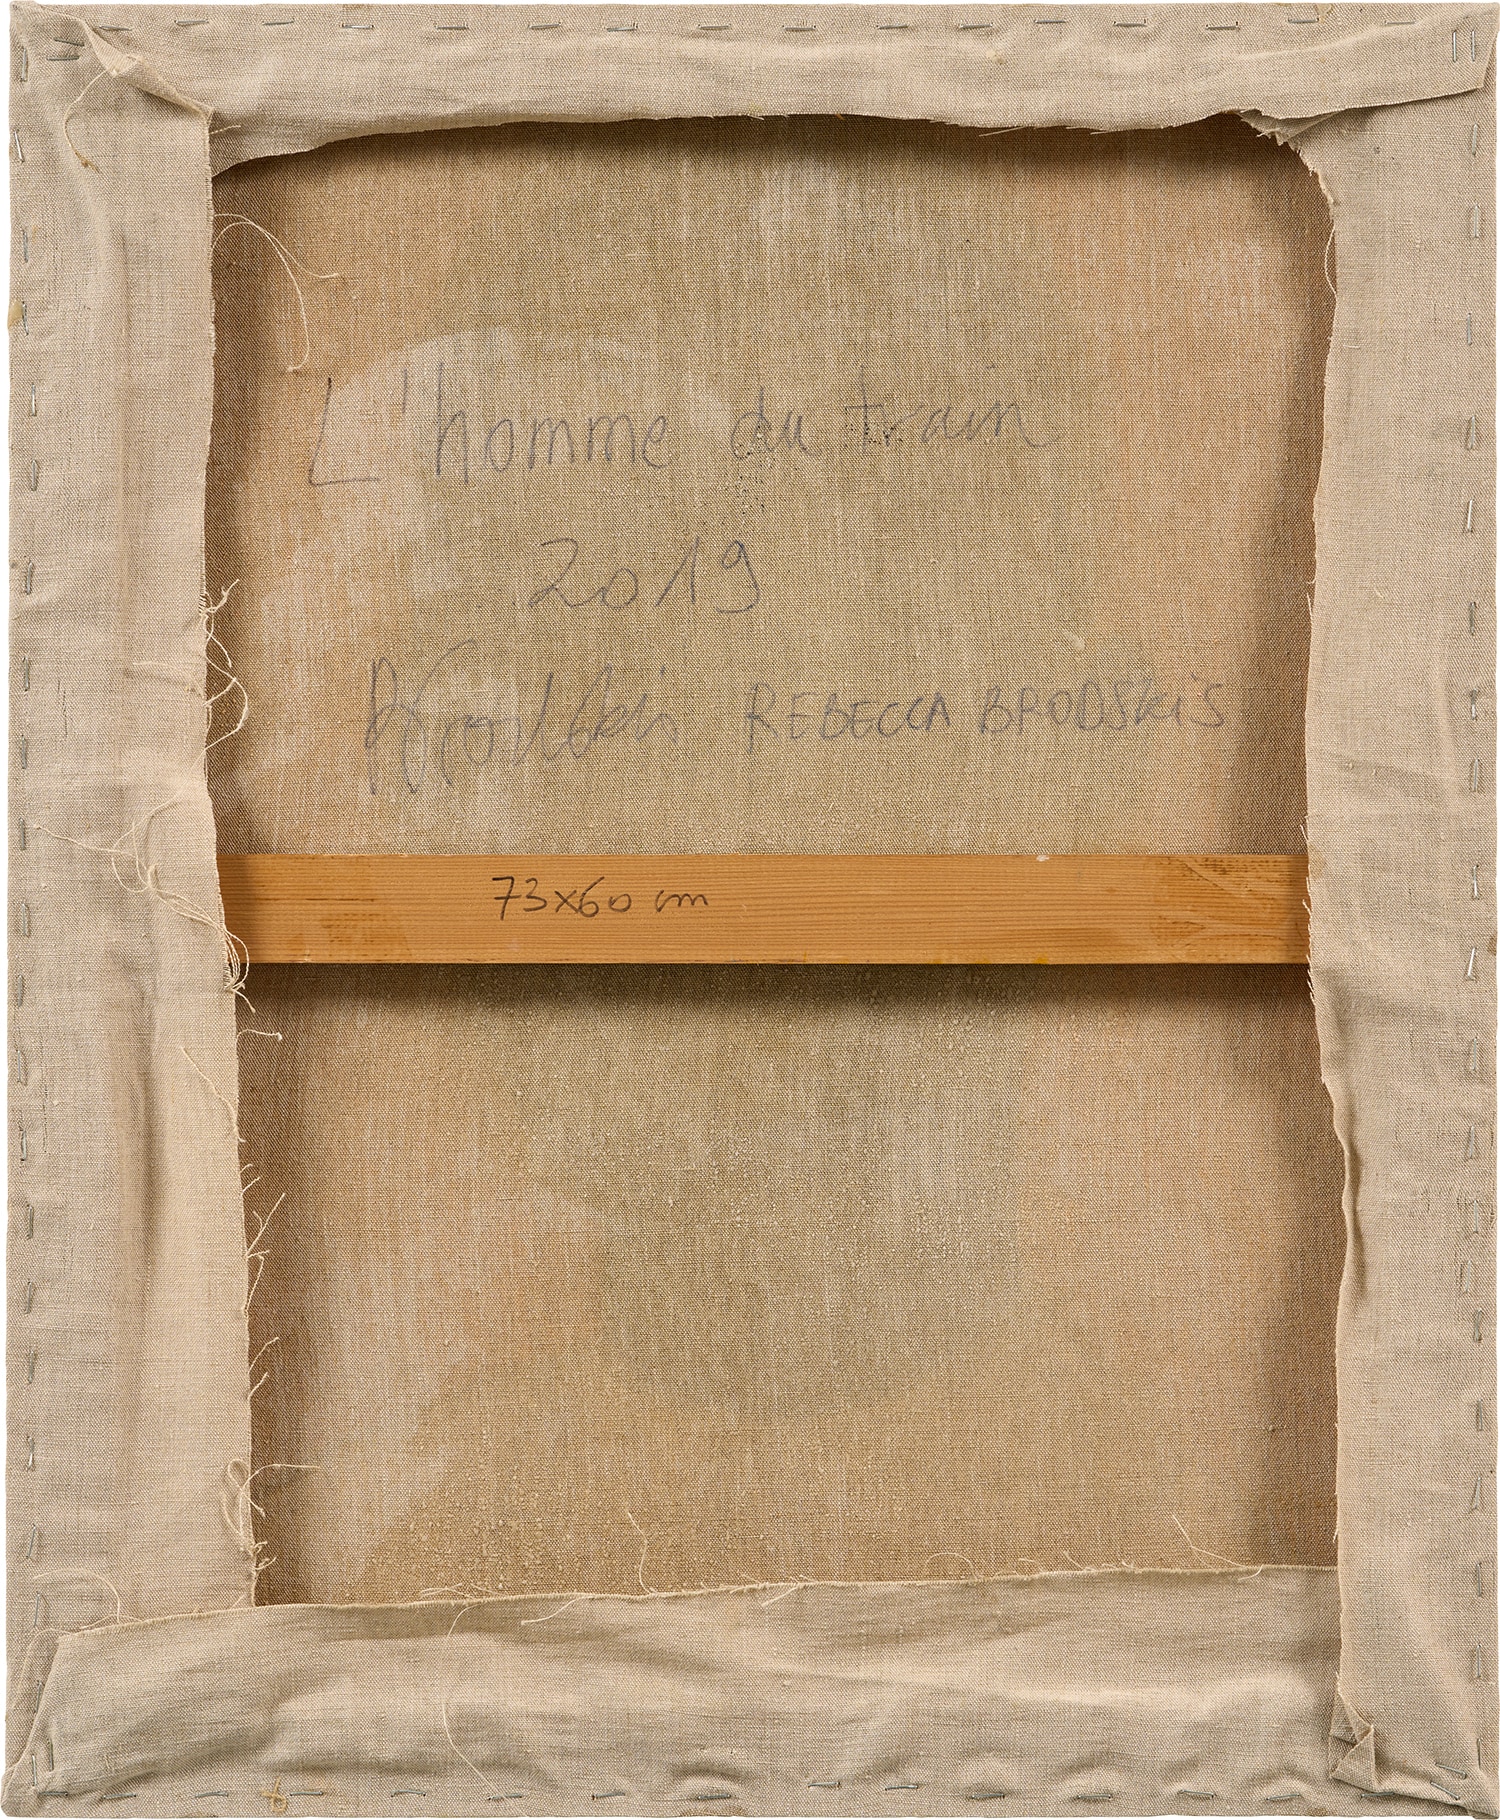 L'homme du train
2019
Brodskis REBECCA BRODSKIS
73x60 cm